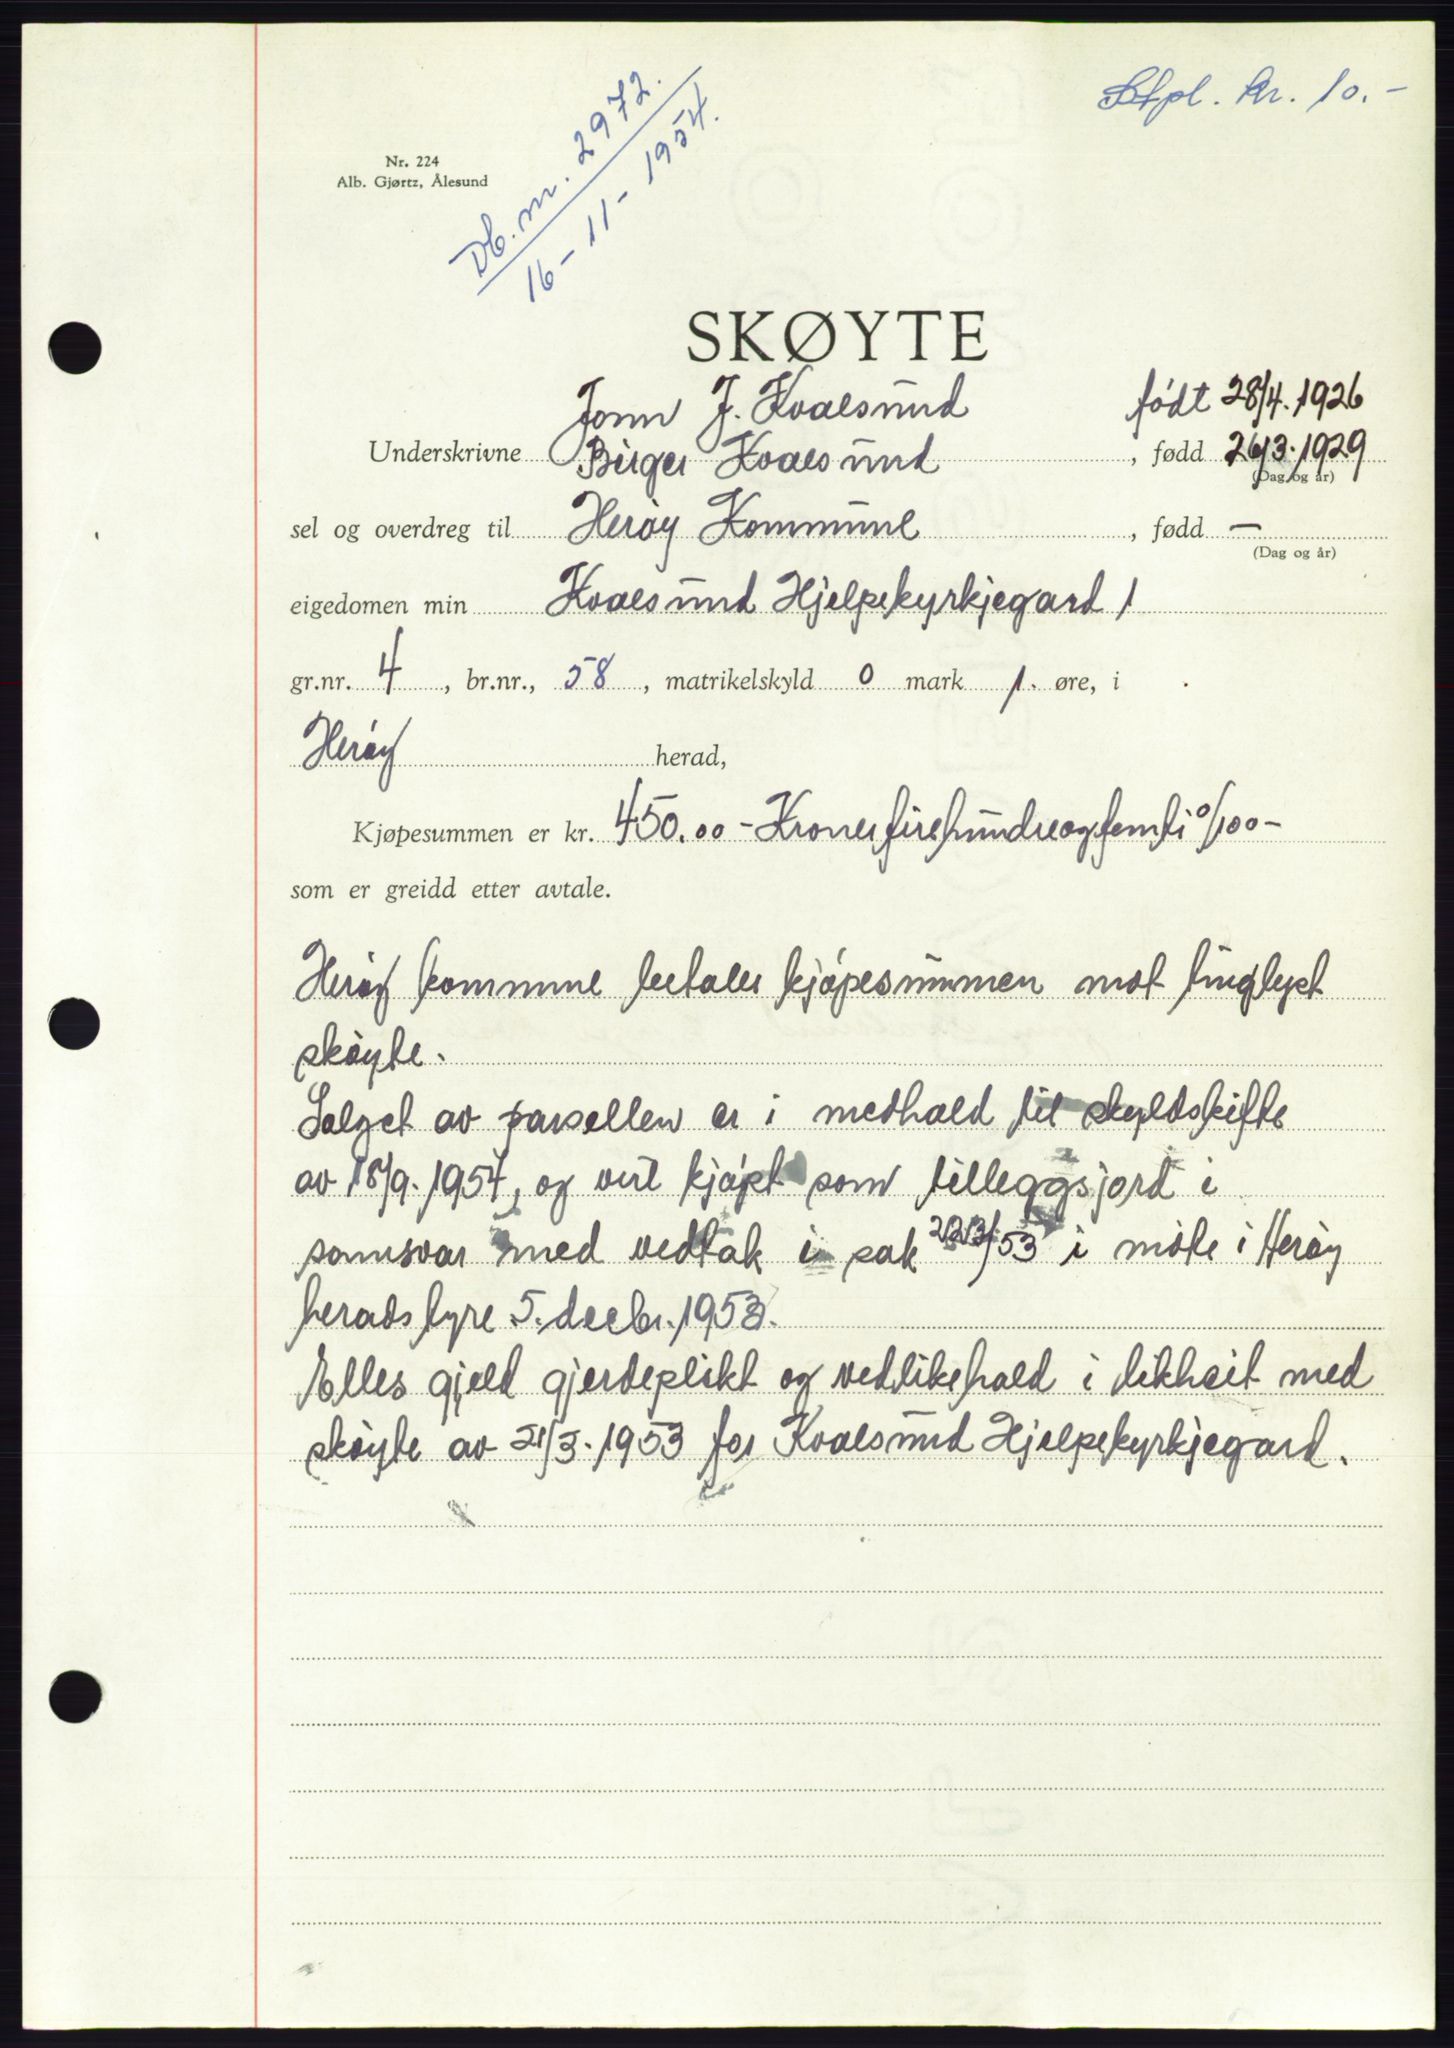 Stpl. kr. 10.-
Db. nr. 2972.
16-11-1954.
Nr. 224
Alb. Gjørtz, Ålesund
SKØYTE
J. Kvalsund født 28/4.1926
Underskrivne Birger Kvalsund, fødd 26/3.1929
(Dag og år)
sel og overdreg til Herøy Kommune, fødd —
(Dag og år)
eigedomen min Kvalsund Hjelpekyrkjegard 1
gr.nr. 4, br.nr., 58, matrikelskyld 0 mark 1. øre, i
Herøy herad,
Kjøpesummen er kr. 450.00 - Kroner firehundreogfemti 0/100 -
som er greidd etter avtale.
Herøy kommune betaler kjøpesummen mot tinglyst
skøyte.
Salget av parsellen er i medhald til skyldskifte
av 18/9.1954, og vert kjøpt som tilleggsjord i
samsvar med vedtak i sak /53 i møte i Herøy
heradstyre 5. decbr. 1953.
Elles gjeld gjerdeplikt og vedlikehald i likheit med
skøyte av 21/3.1953 for Kvalsund Hjelpekyrkjegard.